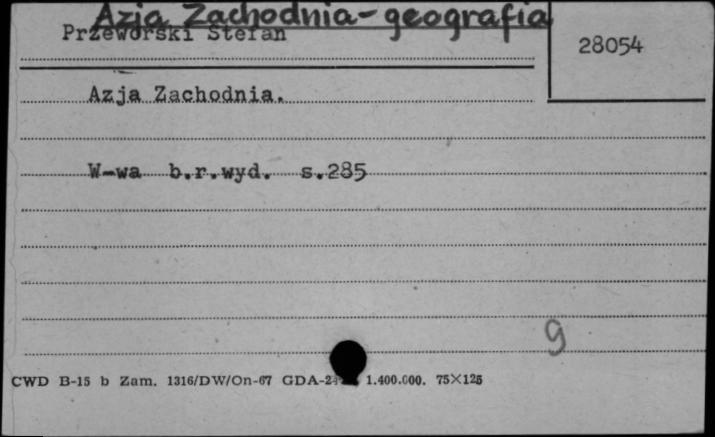 Azja Zachodnia-geografia
Przeworski Stefan
28054
Azja Zachodnia.
W-wa b.r.wyd. s.285
9
CWD B-15 b Zam. 1316/DW/On-67 GDA-2 1.400.000. 75×125